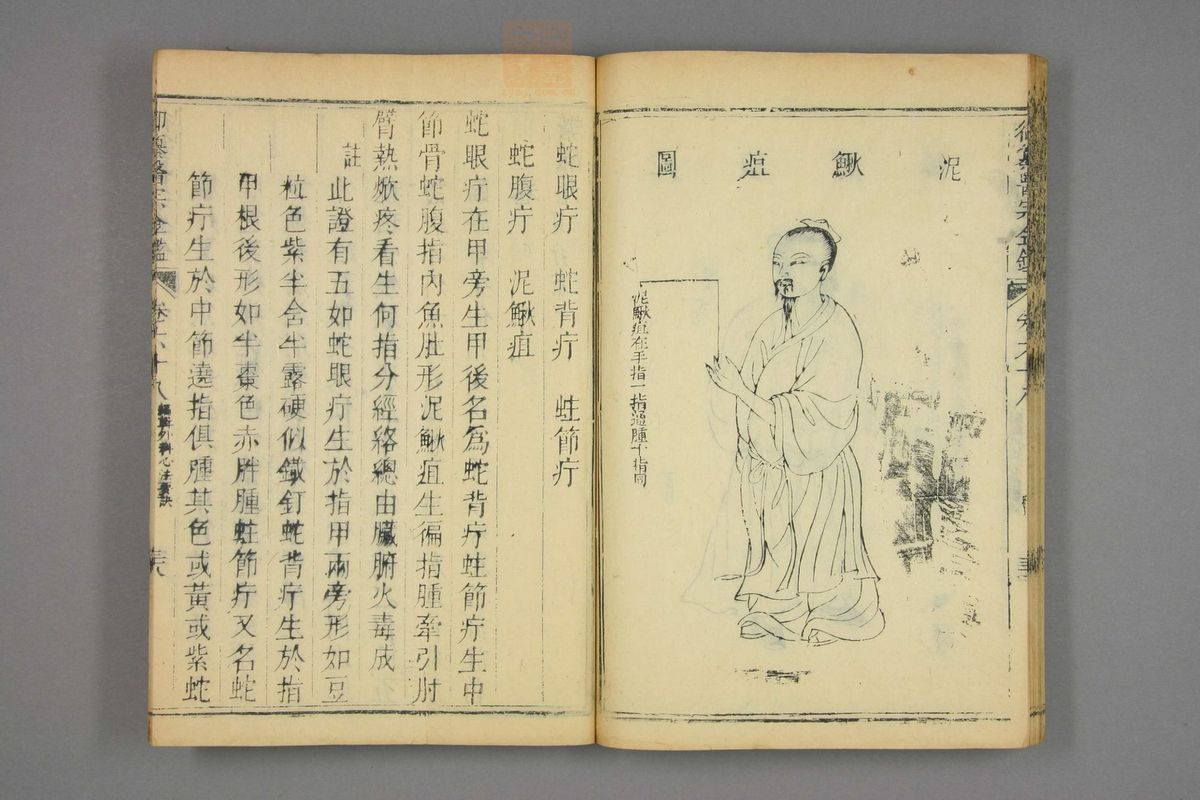 泥鰍疽圖
泥鰍疽在手指一指通腫十指同
蛇眼疔 蛇背疔 蛀節疔
蛇腹疔 泥鰍疽
蛇眼疔在甲旁生甲後名爲蛇背疔蛀節疔生中
節骨蛇腹指內魚肚形泥鰍疽生徧指腫牽引肘
臂熱焮疼看生何指分經絡總由臟腑火毒成
註
此證有五如蛇眼疔生於指甲兩旁形如豆
粒色紫半含半露硬似鐵釘蛇背疔生於指
甲根後形如半棗色赤胖腫蛀節疔又名蛇
節疔生於中節遶指俱腫其色或黃或紫蛇
御纂醫宗金鑑 卷六十八 編輯外科心法要訣 三八